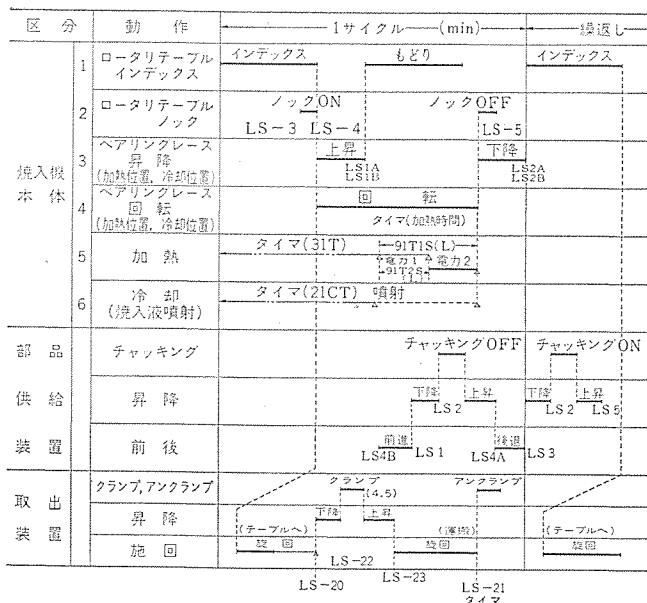 区分 動作 1サイクル (min) 繰返し
焼入機本体
1 ロータリテーブル
インデックス
インデックス もどり インデックス
2 ロータリテーブル
ノック
ノックON ノックOFF
LS-3 LS-4 LS-5
3 ベアリングレース
昇降
(加熱位置, 冷却位置)
上昇 下降
LS1A LS2A
LS1B LS2B
4 ベアリングレース
回転
(加熱位置, 冷却位置)
回転
タイマ(加熱時間)
5 加熱
タイマ(31T) 91T1S(L)
電力1 電力2
91T2S
(L)
6 冷却
(焼入液噴射)
タイマ(21CT) 噴射
部品供給装置
チャッキング
チャッキングOFF チャッキングON
昇降
下降 上昇 下降 上昇
LS2 LS2 LS5
前後
前進 後退
LS4B LS1 LS4A LS3
取出装置
クランプ, アンクランプ
クランプ アンクランプ
(4.5)
昇降
下降 上昇
施回
(テーブルへ) (運搬) (テーブルへ)
旋回 旋回 旋回
LS-22
LS-20 LS-23 LS-21
タイマ